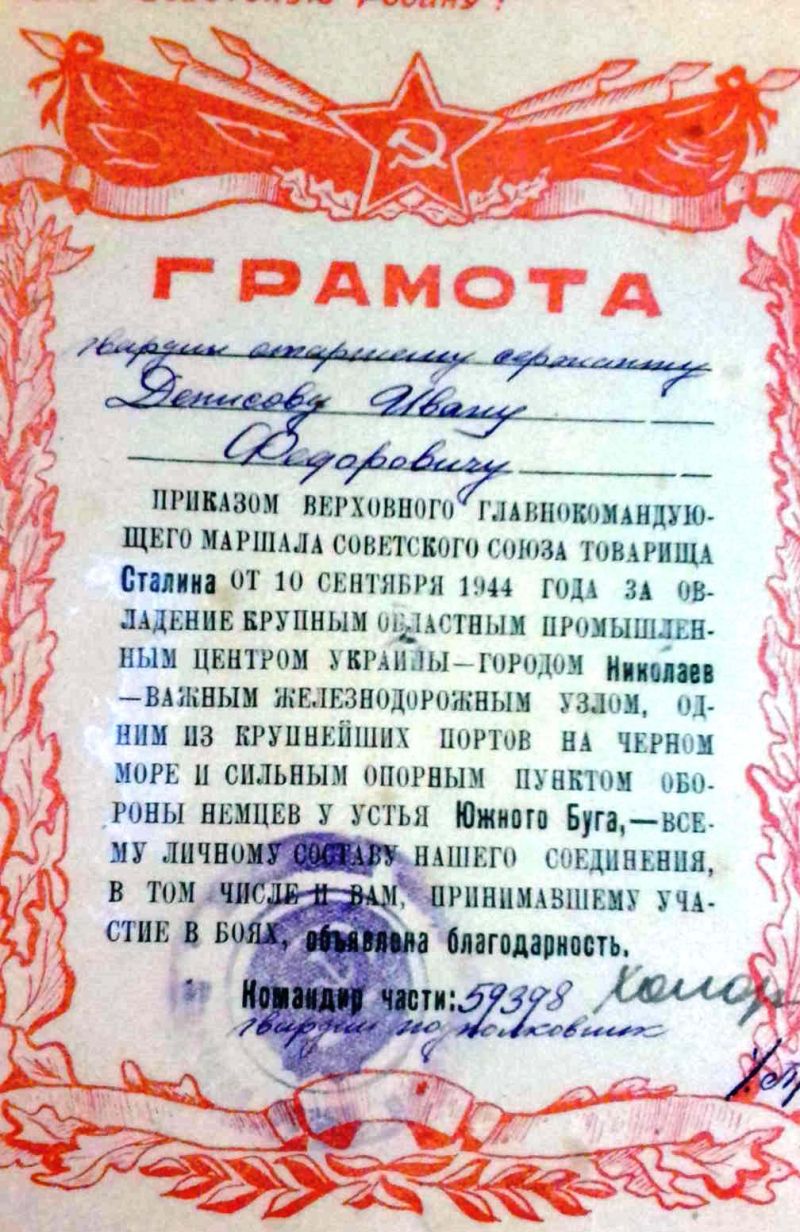 Советскую Родину!
ГРАМОТА
гвардии старшему сержанту
Денисову Ивану
Федоровичу
ПРИКАЗОМ ВЕРХОВНОГО ГЛАВНОКОМАНДУЮ-
ЩЕГО МАРШАЛА СОВЕТСКОГО СОЮЗА ТОВАРИЩА
Сталина ОТ 10 СЕНТЯБРЯ 1944 ГОДА ЗА ОВ-
ЛАДЕНИЕ КРУПНЫМ ОБЛАСТНЫМ ПРОМЫШЛЕН-
НЫМ ЦЕНТРОМ УКРАИНЫ—ГОРОДОМ Николаев
—ВАЖНЫМ ЖЕЛЕЗНОДОРОЖНЫМ УЗЛОМ, ОД-
НИМ ИЗ КРУПНЕЙШИХ ПОРТОВ НА ЧЕРНОМ
МОРЕ И СИЛЬНЫМ ОПОРНЫМ ПУНКТОМ ОБО-
РОНЫ НЕМЦЕВ У УСТЬЯ Южного Буга,—ВСЕ-
МУ ЛИЧНОМУ СОСТАВУ НАШЕГО СОЕДИНЕНИЯ,
В ТОМ ЧИСЛЕ И ВАМ, ПРИНИМАВШЕМУ УЧА-
СТИЕ В БОЯХ, объявлена благодарность.
Командир части: 59398
гвардии подполковник